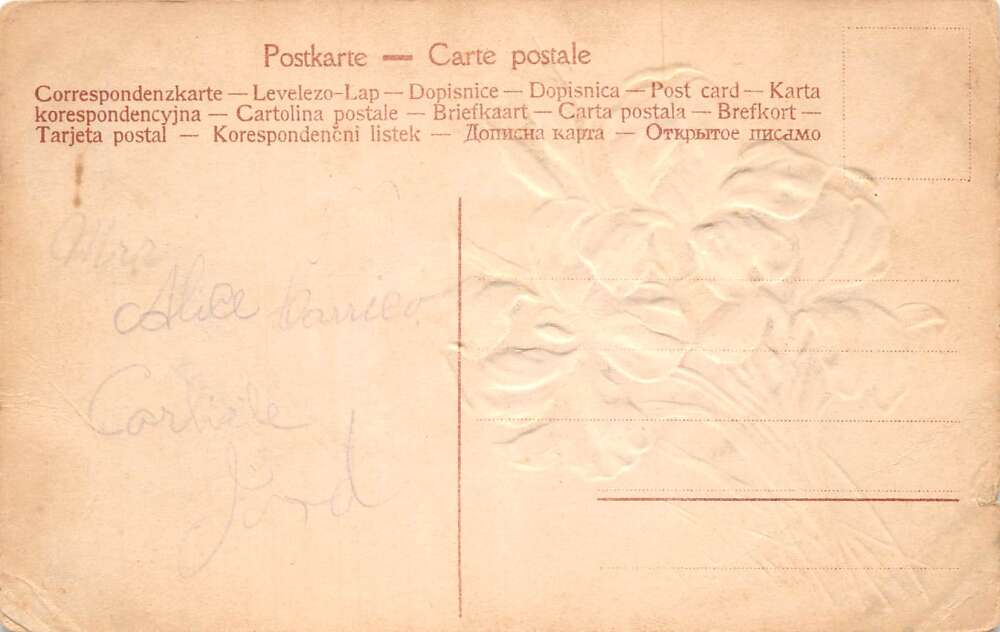 Postkarte — Carte postale
Correspondenzkarte — Levelezo-Lap — Dopisnice — Dopisnica — Post card — Karta
korespondencyjna — Cartolina postale — Briefkaart — Carta postala — Brefkort —
Tarjeta postal — Korespondenčni listek — Дописна карта — Открытое писамо
Mrs
Alice
Carlisle
Ind